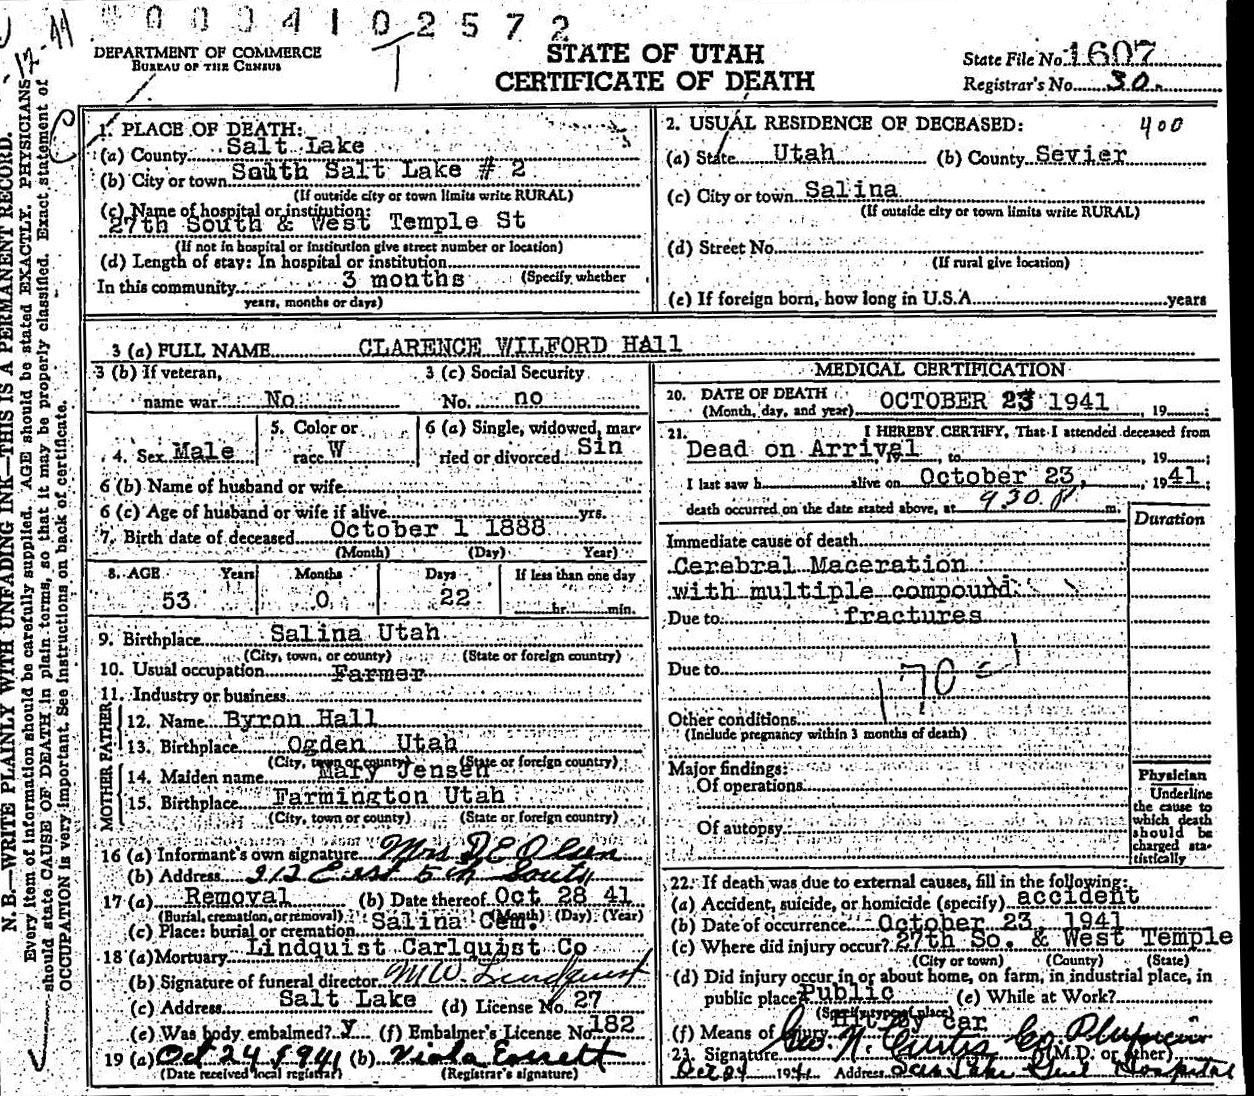 0004102572
DEPARTMENT OF COMMERCE
BUREAU OF THE CENSUS
STATE OF UTAH
CERTIFICATE OF DEATH
State File No. 1607
Registrar's No. 30.
N. B.—WRITE PLAINLY WITH UNFADING INK—THIS IS A PERMANENT RECORD.
Every item of information should be carefully supplied. AGE should be stated EXACTLY. PHYSICIANS
should state CAUSE OF DEATH in plain terms, so that it may be properly classified. Exact statement of
OCCUPATION is very important. See instructions on back of certificate.
1. PLACE OF DEATH:
(a) County Salt Lake
(b) City or town South Salt Lake # 2
(If outside city or town limits write RURAL)
(c) Name of hospital or institution:
27th South & West Temple St
(If not in hospital or institution give street number or location)
(d) Length of stay: In hospital or institution
In this community 3 months (Specify whether
years, months or days)
2. USUAL RESIDENCE OF DECEASED: 400
(a) State Utah (b) County Sevier
(c) City or town Salina
(If outside city or town limits write RURAL)
(d) Street No.
(If rural give location)
(e) If foreign born, how long in U.S.A. years
3 (a) FULL NAME CLARENCE WILFORD HAll
3 (b) If veteran,
name war No
3 (c) Social Security
No. no
4. Sex Male
5. Color or
race W
6 (a) Single, widowed, mar-
ried or divorced Sin
6 (b) Name of husband or wife
6 (c) Age of husband or wife if alive yrs.
7. Birth date of deceased October 1 1888
(Month) (Day) Year)
8. AGE Years Months Days If less than one day
53 0 22 hr. min.
9. Birthplace Salina Utah
(City, town, or county) (State or foreign country)
10. Usual occupation Farmer
11. Industry or business
FATHER
12. Name Byron Hall
13. Birthplace Ogden Utah
(City, town or county) (State or foreign country)
MOTHER
14. Maiden name Mary Jensen
15. Birthplace Farmington Utah
(City, town or county) (State or foreign country)
16 (a) Informant's own signature Mrs D E Olsen
(b) Address 212 East 5th South
17 (a) Removal (b) Date thereof Oct 28 41
(Burial, cremation, or removal) (Month) (Day) (Year)
(c) Place: burial or cremation Salina Cem.
18 (a) Mortuary Lindquist Carlquist Co
(b) Signature of funeral director M W. Lindquist
(c) Address Salt Lake (d) License No. 27
(e) Was body embalmed? y (f) Embalmer's License No. 182
19 (a) Oct 24 1941 (b) Viola
(Date received local registrar) (Registrar's signature)
MEDICAL CERTIFICATION
20. DATE OF DEATH
(Month, day, and year) OCTOBER 23 1941, 19 ;
21. I HEREBY CERTIFY, That I attended deceased from
Dead on Arrival, 19 , to , 19 ;
I last saw h alive on October 23, , 1941;
death occurred on the date stated above, at 930 P m.
Duration
Immediate cause of death
Cerebral Maceration
with multiple compound
Due to fractures
Due to
170
Other conditions
(Include pregnancy within 3 months of death)
Major findings:
Of operations
Of autopsy
Physician
Underline
the cause to
which death
should be
charged sta-
tistically
22. If death was due to external causes, fill in the following:
(a) Accident, suicide, or homicide (specify) accident
(b) Date of occurrence October 23 1941
(c) Where did injury occur? 27th So. & West Temple
(City or town) (County) (State)
(d) Did injury occur in or about home, on farm, in industrial place, in
public place? Public (e) While at Work?
(Specify type of place)
(f) Means of injury Hit by car
23. Signature Geo. N. Curtis Co Physician (M.D. or other)
Oct 24 1941 Address Salt Lake Gen'l Hospital